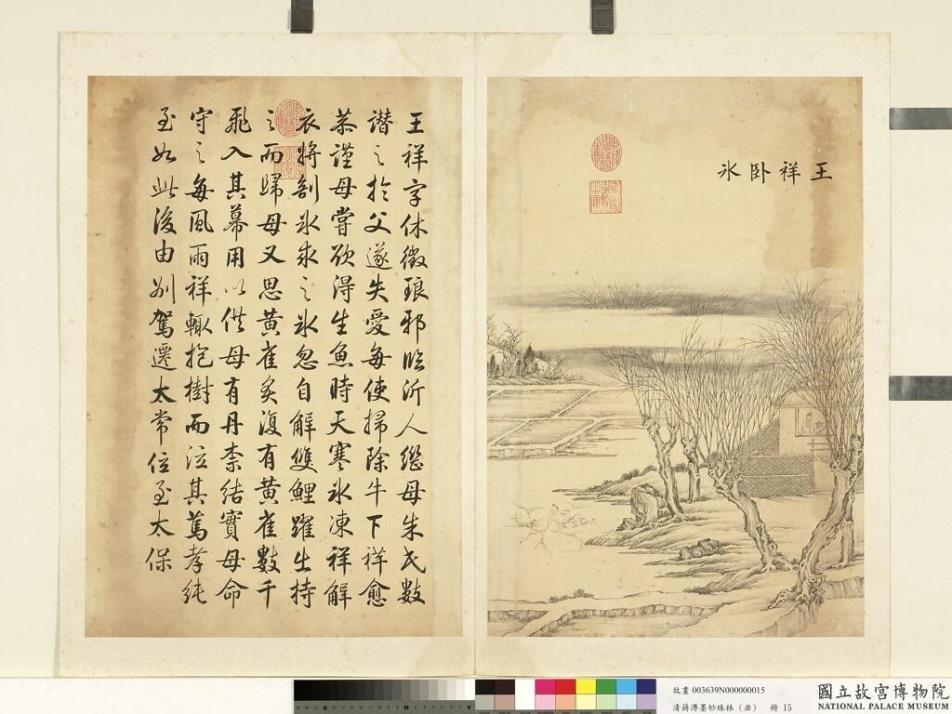 王祥卧氷
王祥字休徵琅邪臨沂人繼母朱氏數
譖之於父遂失愛每使掃除牛下祥愈
恭謹母嘗欲得生魚時天寒氷凍祥解
衣將剖氷求之氷忽自解雙鯉躍出持
之而歸母又思黄雀炙復有黄雀數千
飛入其幕用以供母有丹柰結實母命
守之每風雨祥輒抱樹而泣其篤孝純
至如此後由別駕遷太常位至太保
故畫 003639N000000015
清蔣溥墨妙珠林（丑） 冊 15
國立故宮博物院
NATIONAL PALACE MUSEUM